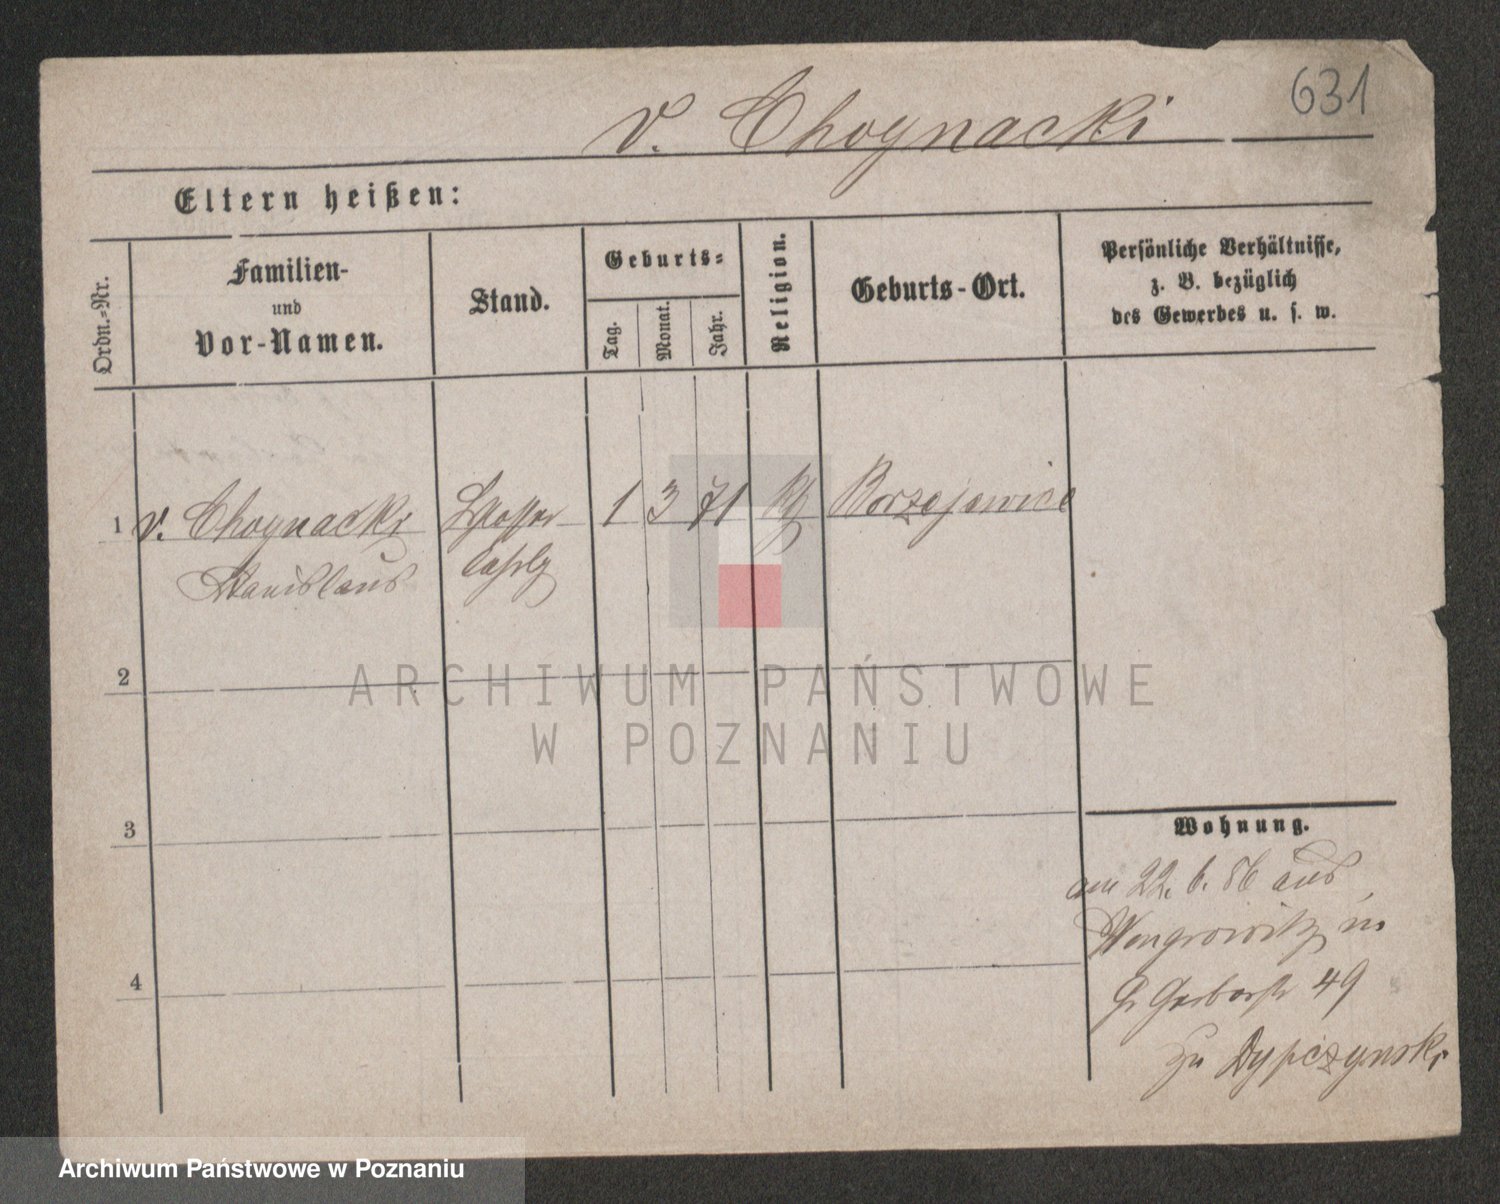 631
v. Choynacki
Eltern heißen:
Ordn.-Nr.
Familien-
und
Vor-Namen.
Stand.
Geburts-
Tag.
Monat.
Jahr.
Religion.
Geburts-Ort.
Persönliche Verhältnisse,
z. B. bezüglich
des Gewerbes u. s. w.
1 v. Choynacki Schlosser 1 3 71 Borzejewice
Stanislaus
2
3
4
Wohnung.
am 22. 6. 86 aus
Wongrowitz in
Gr Gerberstr 49
zu Dypczynski
ARCHIWUM PAŃSTWOWE
W POZNANIU
Archiwum Państwowe w Poznaniu